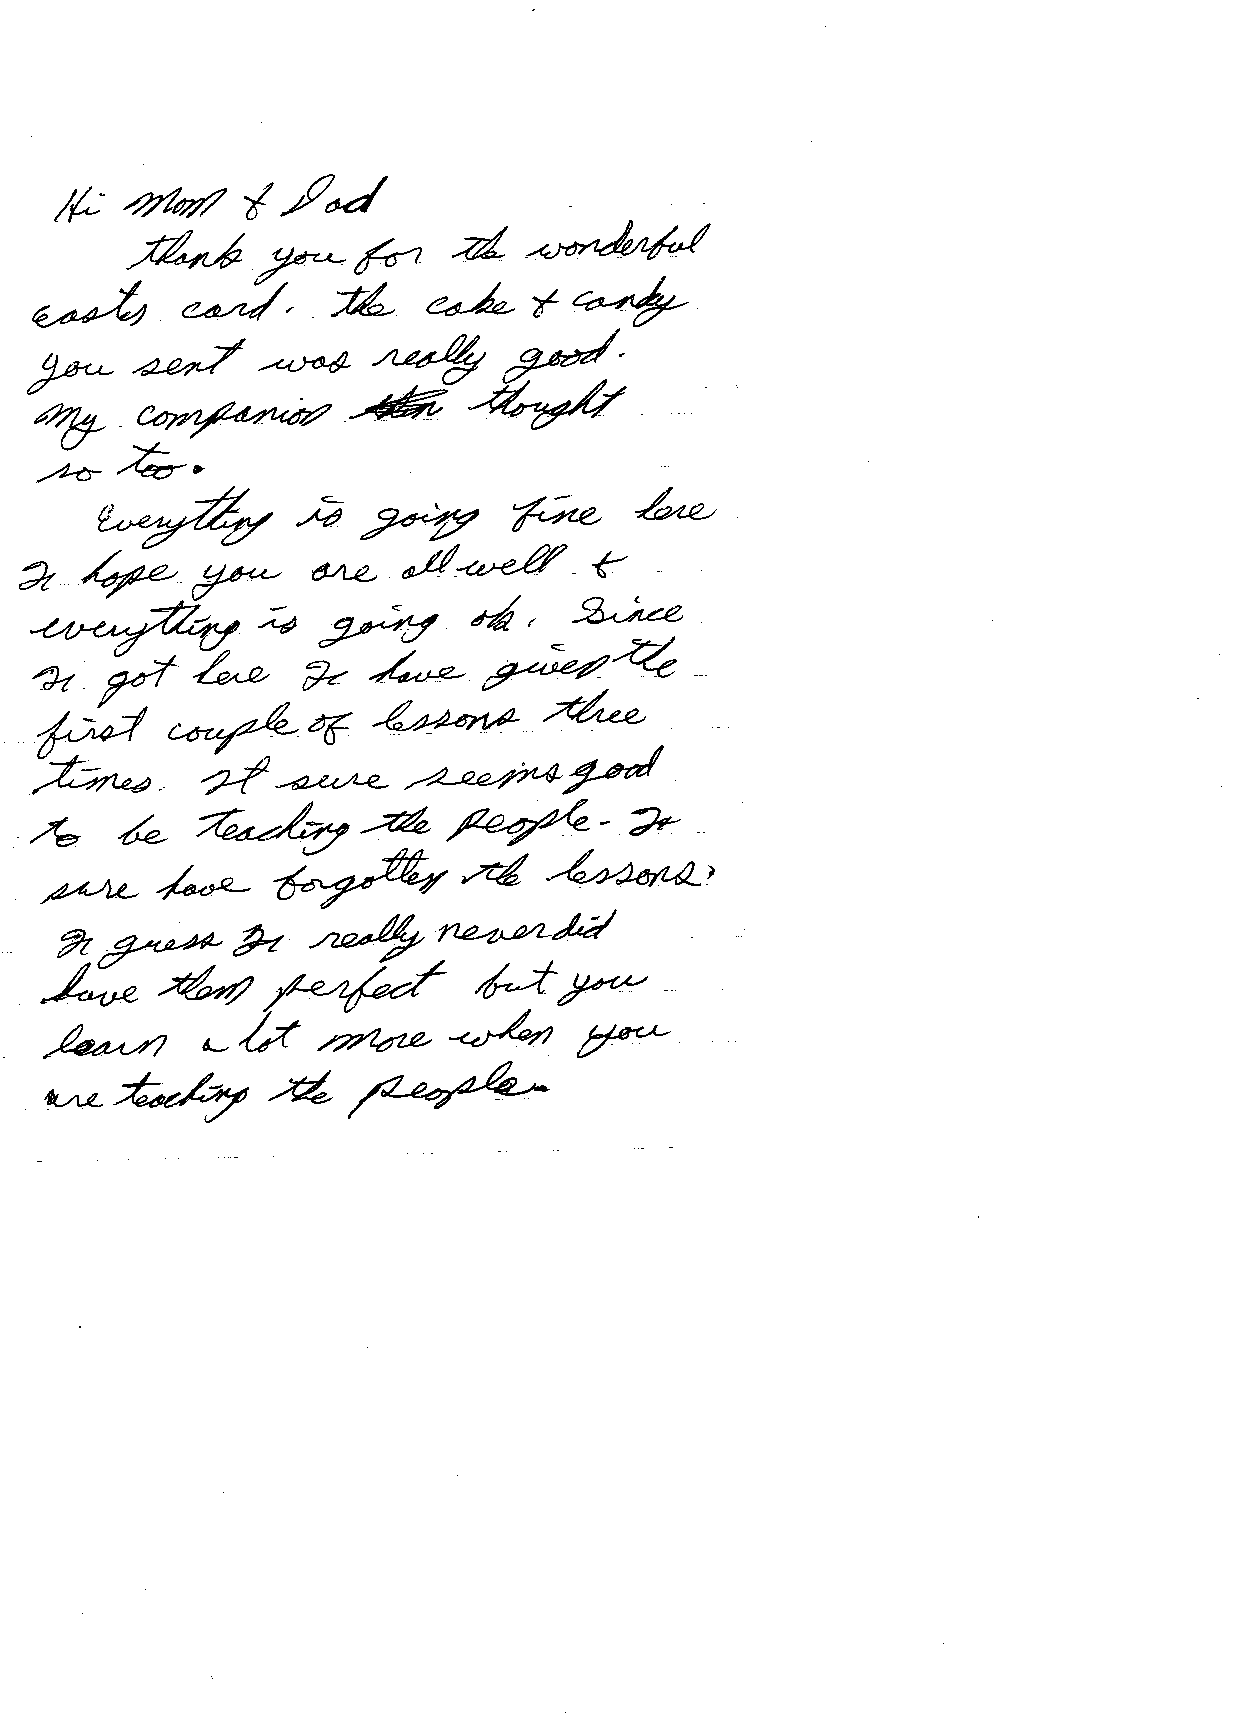 Hi Mom & Dad
Thank you for the wonderful
easter card. The cake & candy
you sent was really good.
My companion thought
so too.
Everything is going fine here
I hope you are all well &
everything is going ok. Since
I got here I have given the
first couple of lessons three
times. It sure seems good
to be teaching the people. I
sure have forgotten the lessons.
I guess I really never did
have them perfect but you
learn a lot more when you
are teaching the people.